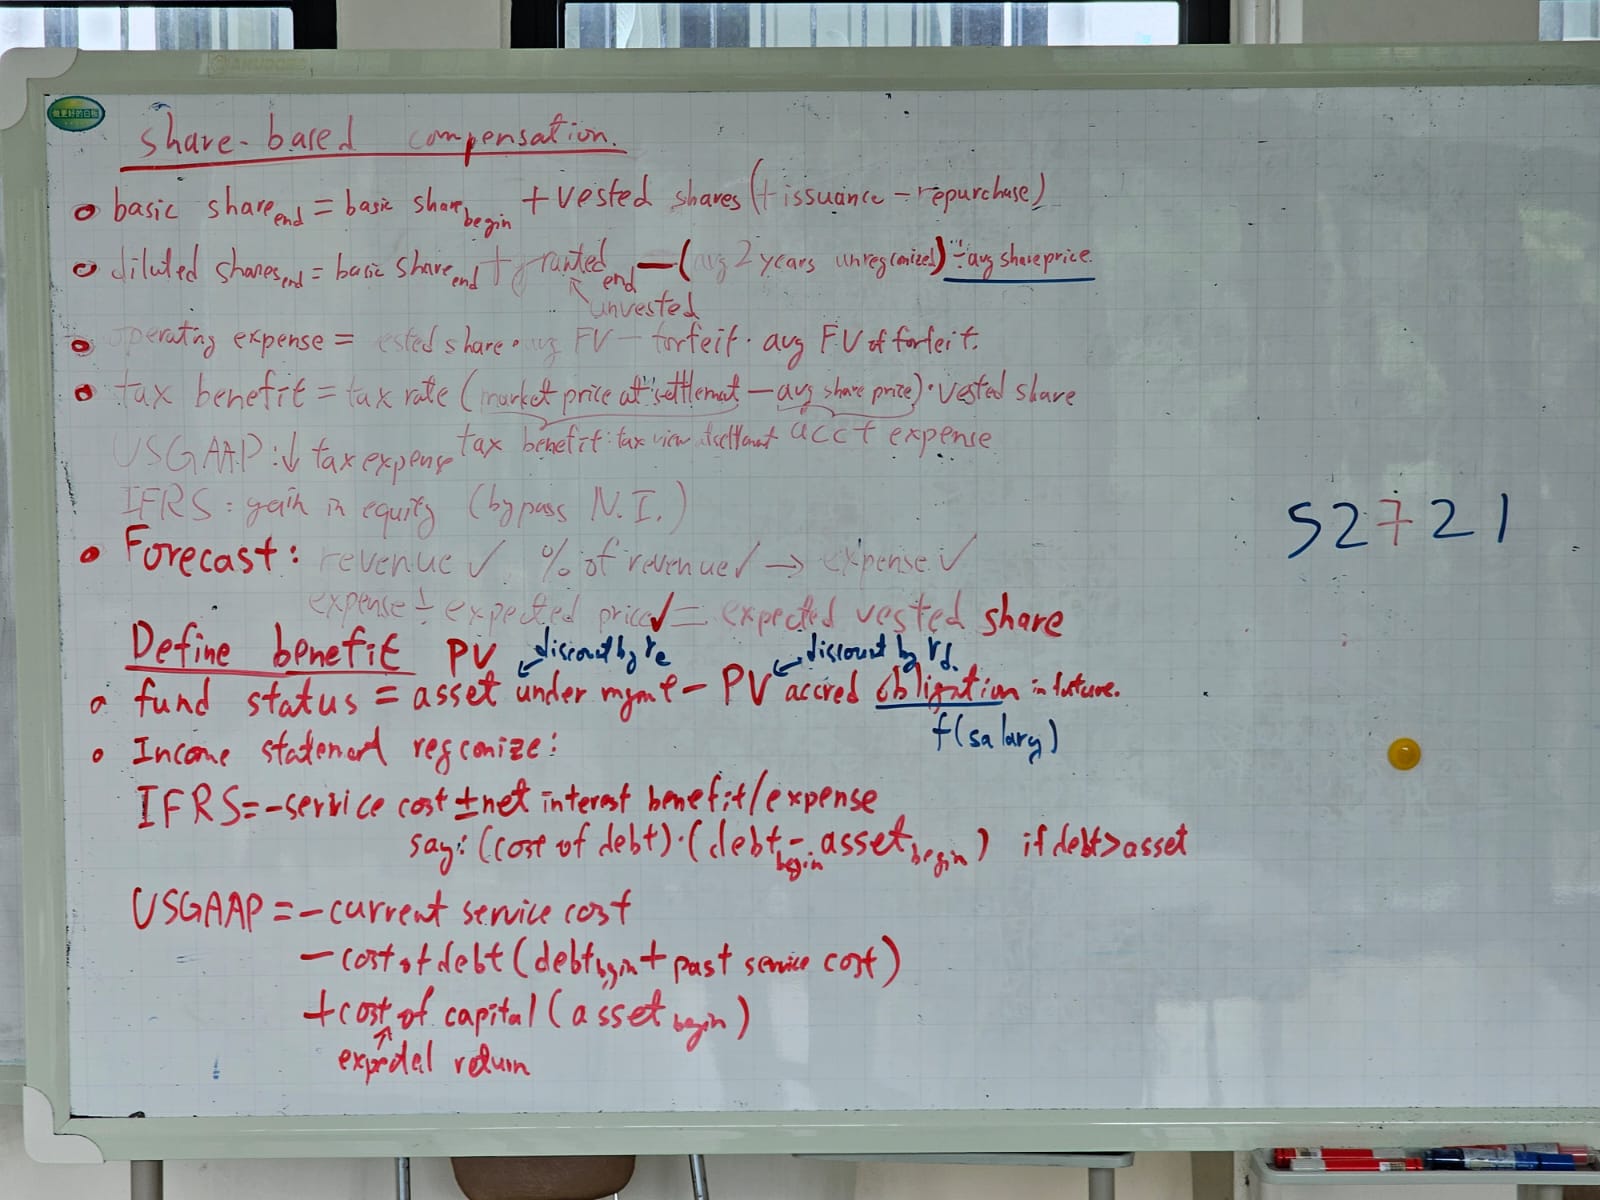 做更好的白板
share-based compensation.
basic share end = basic share begin + vested shares (+ issuance - repurchase)
diluted shares end = basic share end + granted end — (avg 2 years unregconized) ÷ avg share price.
unvested
operating expense = ested share · avg FV - forfeit · avg FV of forfeit.
tax benefit = tax rate (market price at settlemat - avg share price) · vested share
tax benefit: tax view settlemt acct expense
USGAAP: ↓ tax expense
IFRS: gain in equity (bypass N.I.)
Forecast: revenue ✓, % of revenue ✓ → expense ✓
expense ÷ expected price ✓ = expected vested share
Define benefit PV discount by re discount by rd.
fund status = asset under mgmt - PV accred obligation in future.
f(salary)
Income statement regconize:
IFRS = - service cost ± net interest benefit/expense
say: (cost of debt)·(debt begin - asset begin) if debt > asset
USGAAP = - current service cost
- cost of debt (debt begin + past service cost)
+ cost of capital (asset begin)
↑
expectal return
52721